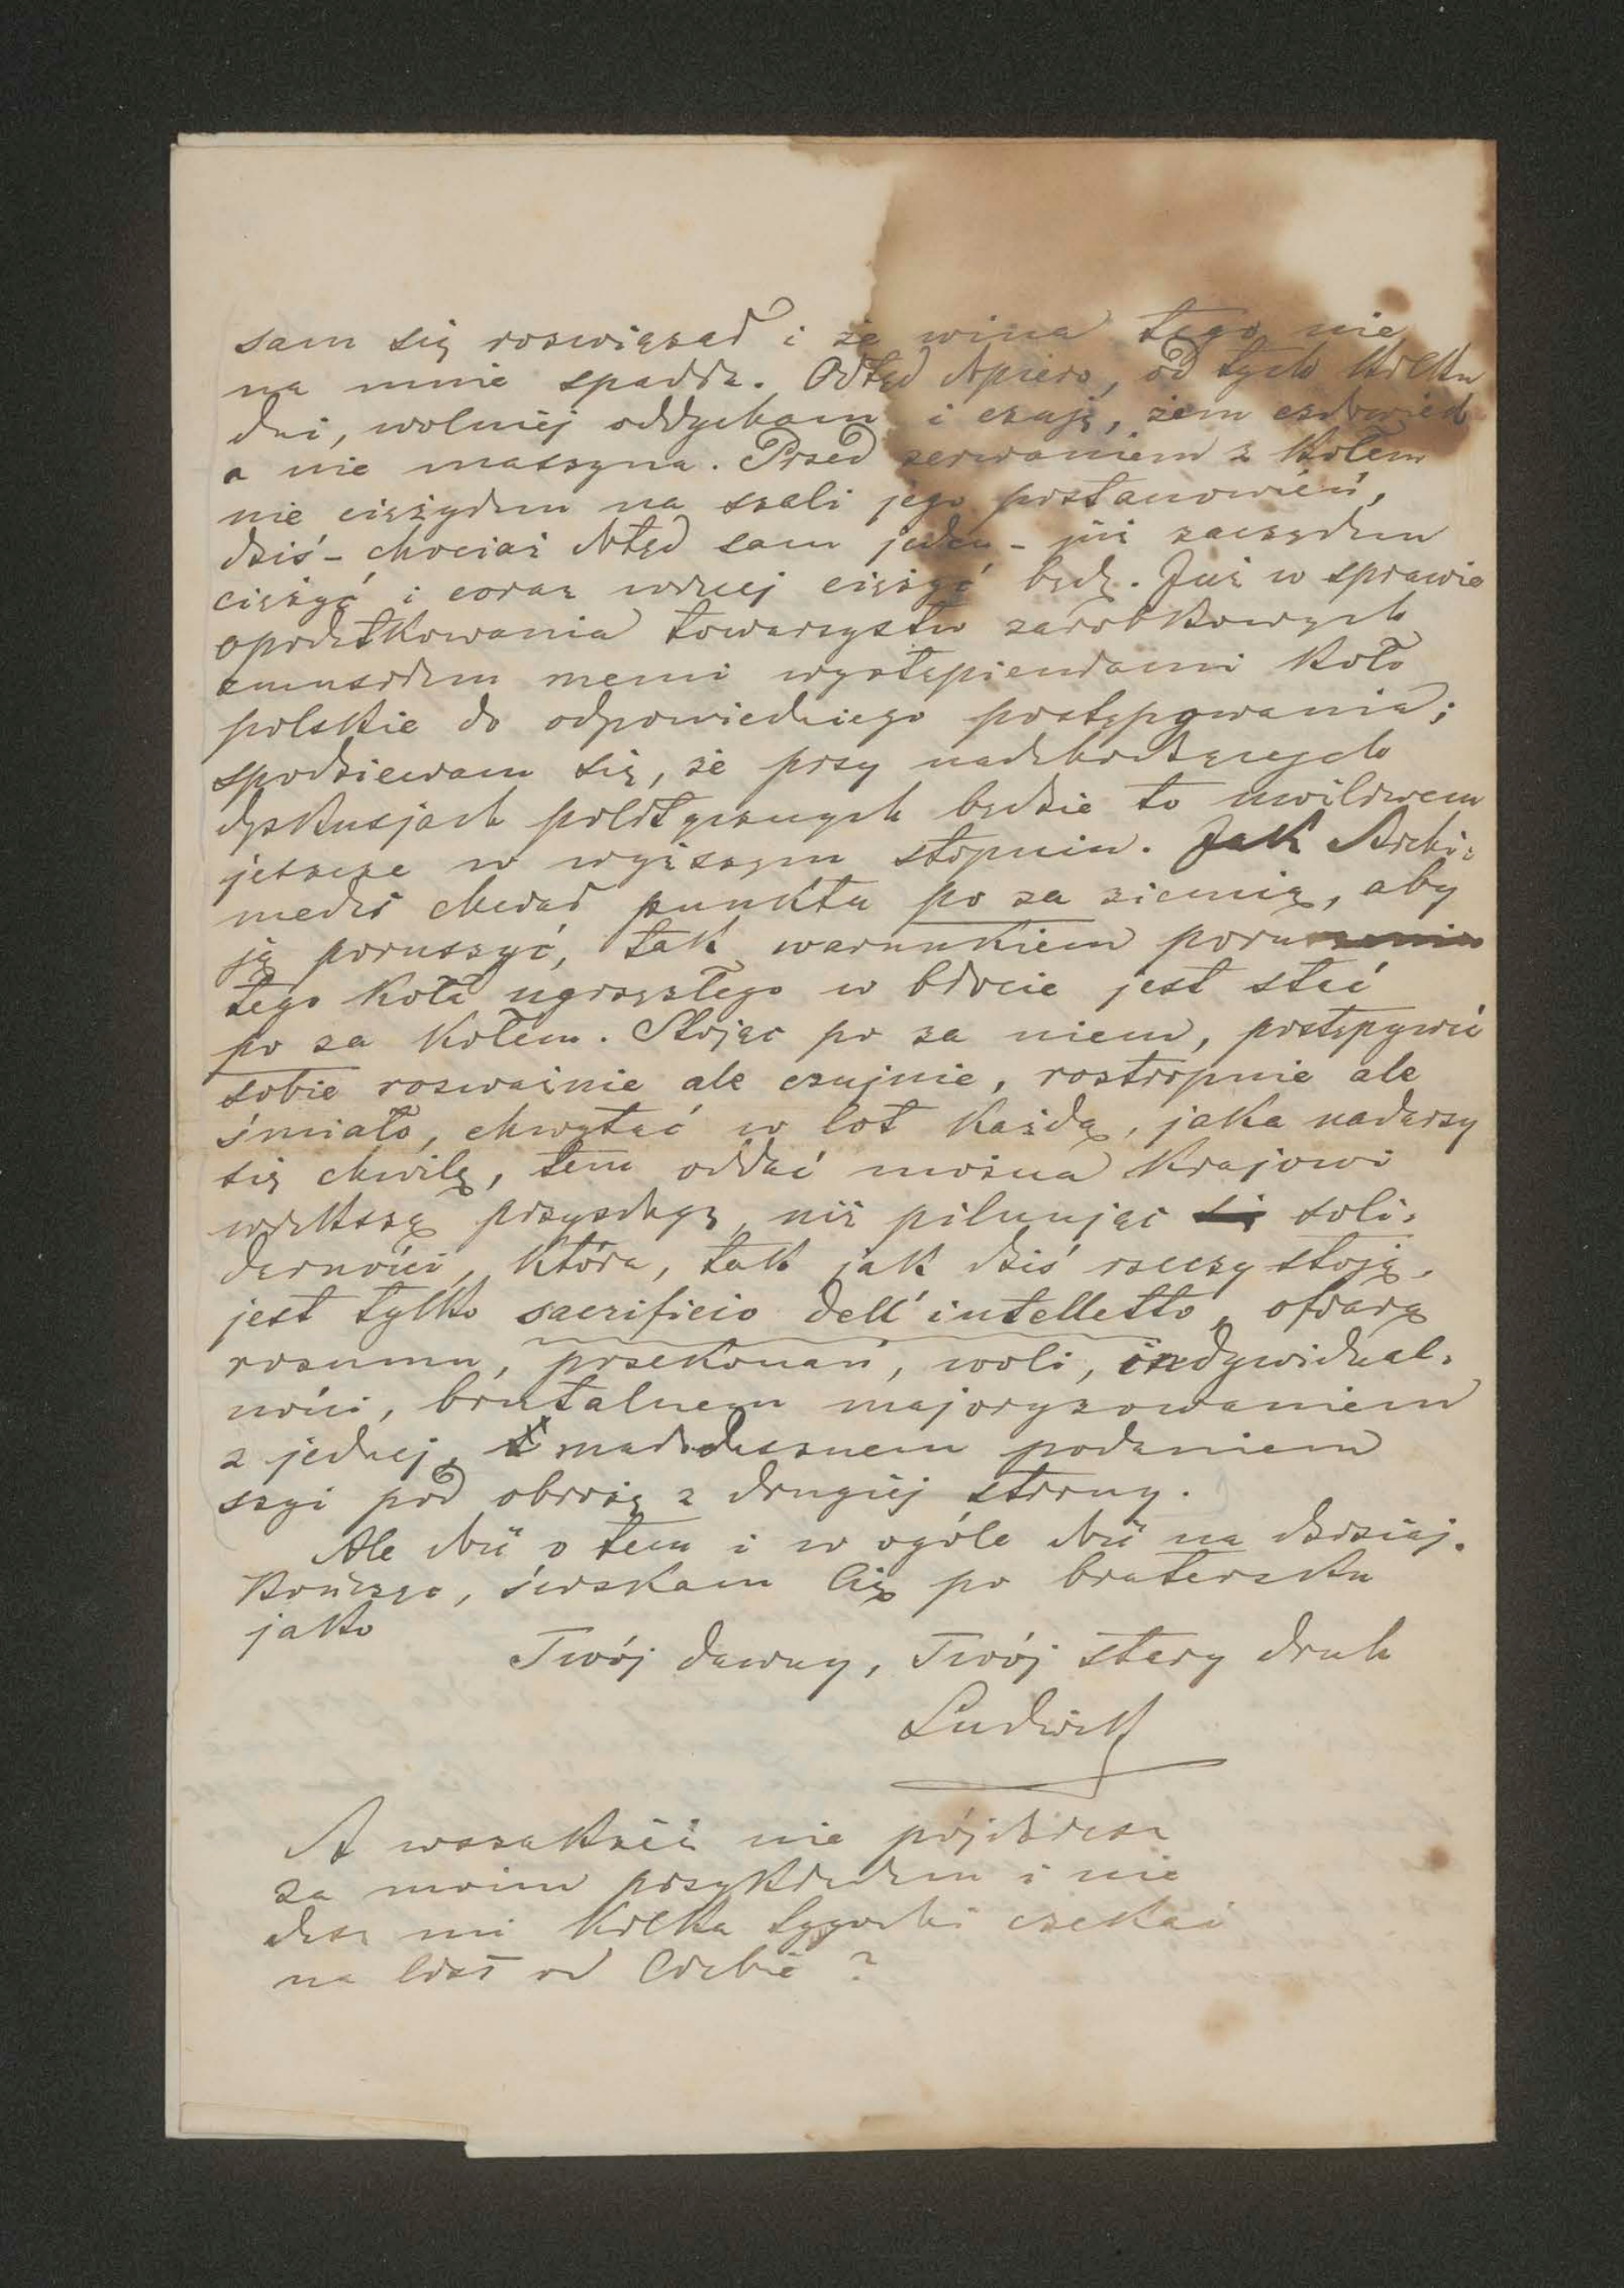 sam się rozwiązał i że wina tego nie
na mnie spadła. Odtąd dopiero, od tych kilku
dni, wolniéj oddycham i czuję, żem człowiek
a nie maszyna. Przed zerwaniem z Kołem
nie ciężyłem na szali jego postanowień,
dziś – chociaż dotąd sam jeden – już zacząłem
ciężyć i coraz więcej ciężyć będę. Już w sprawie
opodatkowania towarzystw zarobkowych
zmusiłem memi wystąpieniami Koło
polskie do odpowiedniego postępywania;
spodziewam się, że przy nadchodzących
dyskusjach politycznych będzie to możliwem
jeszcze w wyższym stopniu. Jak Archi-
medes chciał punktu po za ziemią, aby
ją poruszyć, tak warunkiem poruszenia
tego Koła ugrzęzłego w błocie jest stać
po za Kołem. Stojąc po za niem, postępywać
sobie rozważnie ale czujnie, roztropnie ale
śmiało, chwytać w lot każdą, jaka nadarzy
się chwilę, tem oddać można Krajowi
większą przysługę, niż pilnując soli-
darności, która, tak jak dziś rzeczy stoją,
jest tylko sacrificio dell'intelletto, ofiarą
rozumu, przekonań, woli, indywidual-
ności, brutalnem majoryzowaniem
z jednej, małodusznem podaniem
szyi pod obrożę z drugiéj strony.
Ale dość o tem i w ogóle dość na dzisiaj.
Kończąc, ściskam Cię po bratersku
jako
Twój dawny, Twój stary druh
Ludwik
A wszakżeż nie pójdziesz
za moim przykładem i nie
dasz mi kilka tygodni czekać
na list od Ciebie?